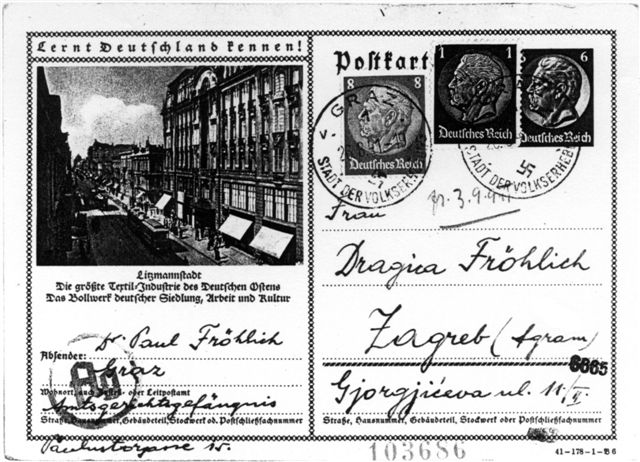 Lernt Deutschland kennen!
Litzmannstadt
Die größte Textil-Industrie des Deutschen Ostens
Das Bollwerk deutscher Siedlung, Arbeit und Kultur
Dr Paul Fröhlich
Absender:
Graz
Wohnort, auch Zustell- oder Leitpostamt
Amtsgerichtsgefängnis
Straße, Hausnummer, Gebäudeteil, Stockwerk od. Postschließfachnummer
Paulustorgasse 15.
Postkarte
8 8
Deutsches Reich
1 1
Deutsches Reich
6
Deutsches Reich
GRAZ
STADT DER VOLKSERHEB
STADT DER VOLKSERHEB
3.9.41
Frau
Dragica Fröhlich
Zagreb (Agram)
6665
Gjorgjićeva ul. 11/II.
Straße, Hausnummer, Gebäudeteil, Stockwerk oder Postschließfachnummer
103686
41-178-1-B6